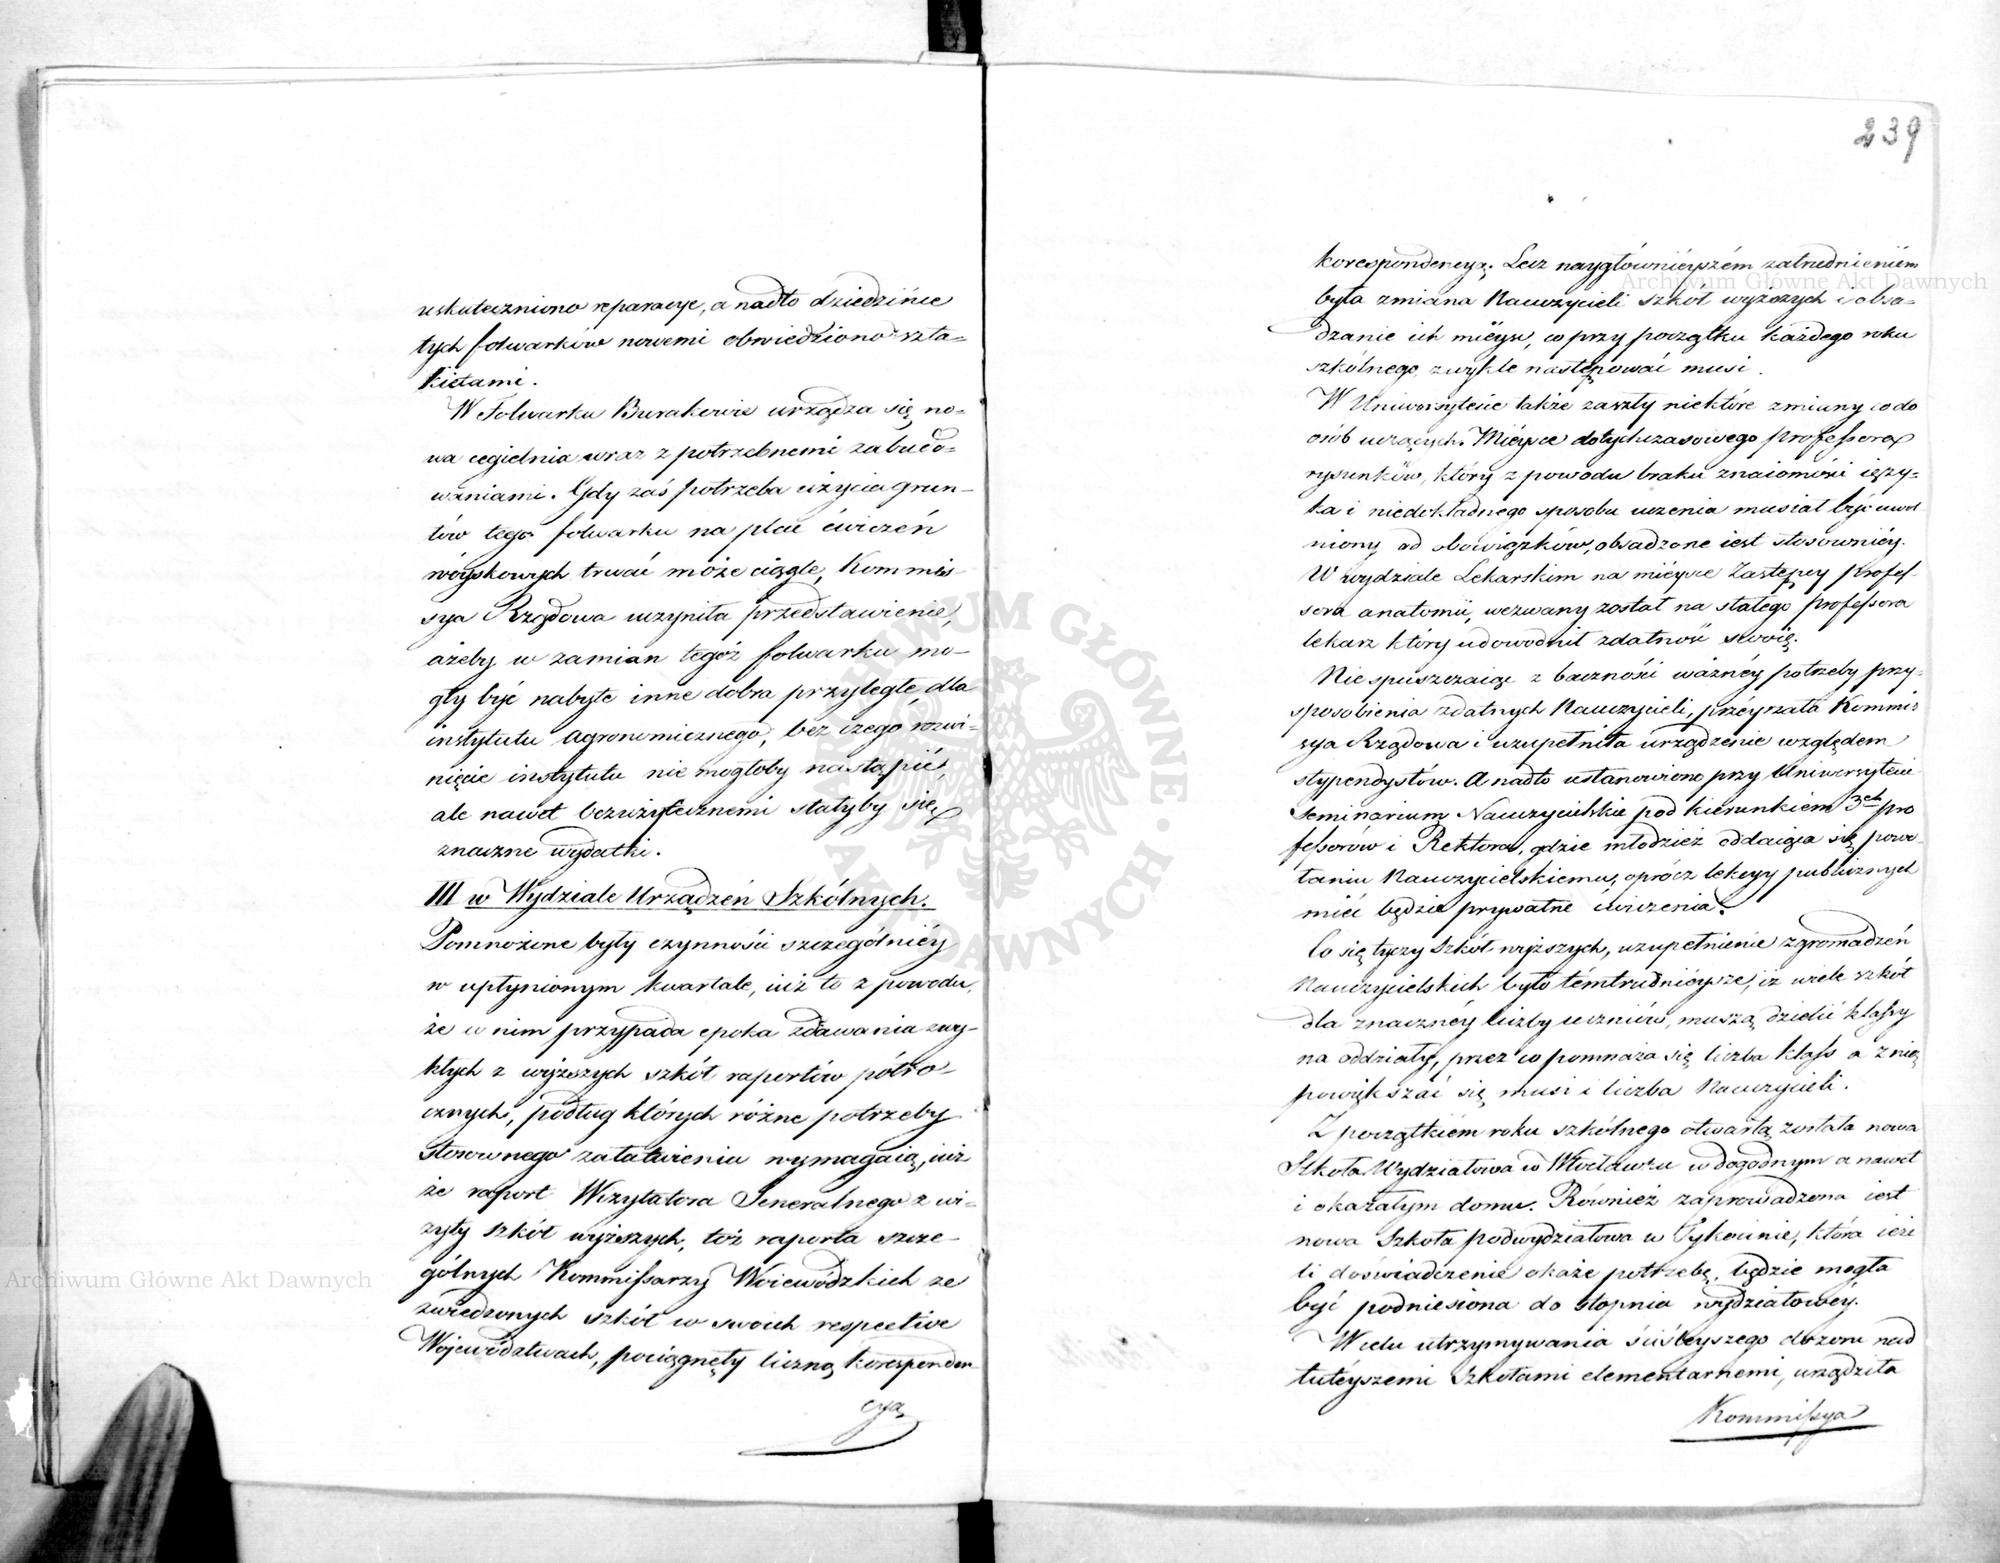 uskuteczniono reparacye, a nadto dziedzińce
tych folwarków nowemi obwiedziono szta-
kietami.
W Folwarku Burakowie urządza się no-
wa cegielnia wraz z potrzebnemi zabudo-
waniami. Gdy zaś potrzeba użycia grun-
tów tego folwarku na plac ćwiczeń
wóyskowych trwać może ciągle, Kommis-
sya Rządowa uczyniła przedstawienie,
ażeby w zamian tegoż folwarku mo-
gły być nabyte inne dobra przyległe, dla
instytutu Agronomicznego, bez czego rozwi-
nięcie instytutu nie mogłoby nastąpić,
ale nawet bezużytecznemi stałyby się
znaczne wydatki.
III w Wydziale Urządzeń Szkólnych.
Pomnożone były czynności szczególniéy
w upłynionym kwartale, iuż to z powodu,
że w nim przypada epoka zdawania zwy-
kłych z wyższych szkół raportów półro-
cznych, podług których różne potrzeby
stosownego załatwienia wymagaią, iuż
że raport Wizytatora Generalnego z wi-
zyty szkół wyższych, toż raporta szcze-
gólnych Kommissarzy Woiewódzkich ze
zwiedzonych szkół w swoich respective
Województwach, pociągnęły liczną korresponden-
cyą
239
korespondencyą. Lecz naygłówniéyszém zatrudnieniém
była zmiana Nauczycieli szkół wyższych i obsa-
dzanie ich mieysc, co przy początku każdego roku
szkólnego, zwykle następować musi.
W Uniwersytecie także zaszły niektóre zmiany co do
osób uczących. Miéysce dotychczasowego professora
rysunków, który z powodu braku znaiomości ięzy-
ka i niedokładnego sposobu uczenia musiał być uwol
niony od obowiązków, obsadzone iest stosowniéy.
W wydziale Lekarskim na miéysce Zastępcy profes-
sora anatomii, wezwany został na stałego professora
lekarz który udowodnił zdatność swoię.
Nie spuszczaiąc z baczności ważnéy potrzeby przy-
sposobienia zdatnych Nauczycieli, przéyrzała Kommis
sya Rządowa i uzupełniła urządzenie względem
stypendystów. A nadto ustanowiono przy Uniwersytecie
Seminarium Nauczycielskie pod kierunkiém 3ch pro
fessorów i Rektora, gdzie młodzież oddaiąca się powo-
łaniu Nauczycielskiemu, oprócz lekcyy publicznych
mieć będzie prywatne ćwiczenia.
Co się tyczy Szkół wyższych, uzupełnienie zgromadzeń
Nauczycielskich było témtrudniéysze, iż wiele szkół
dla znacznéy liczby uczniów, muszą dzielić klassy
na oddziały, przez co pomnaża się liczba klass a z nią
powiększać się musi i liczba Nauczycieli.
Z początkiém roku szkólnego otwartą została nowa
Szkoła Wydziałowa w Włocławku w dogodnym a nawet
i okazałym domu. Również zaprowadzona iest
nowa Szkoła podwydziałowa w Tykocinie, która ieże
li doświadczenie okaże potrzebę, będzie mogła
być podniesiona do stopnia wydziałowéy.
W celu utrzymywania ściśleyszego dozoru nad
tutéyszemi Szkołami elementarnemi, urządziła
Kommissya
Archiwum Główne Akt Dawnych
Archiwum Główne Akt Dawnych
ARCHIWUM GŁÓWNE AKT DAWNYCH